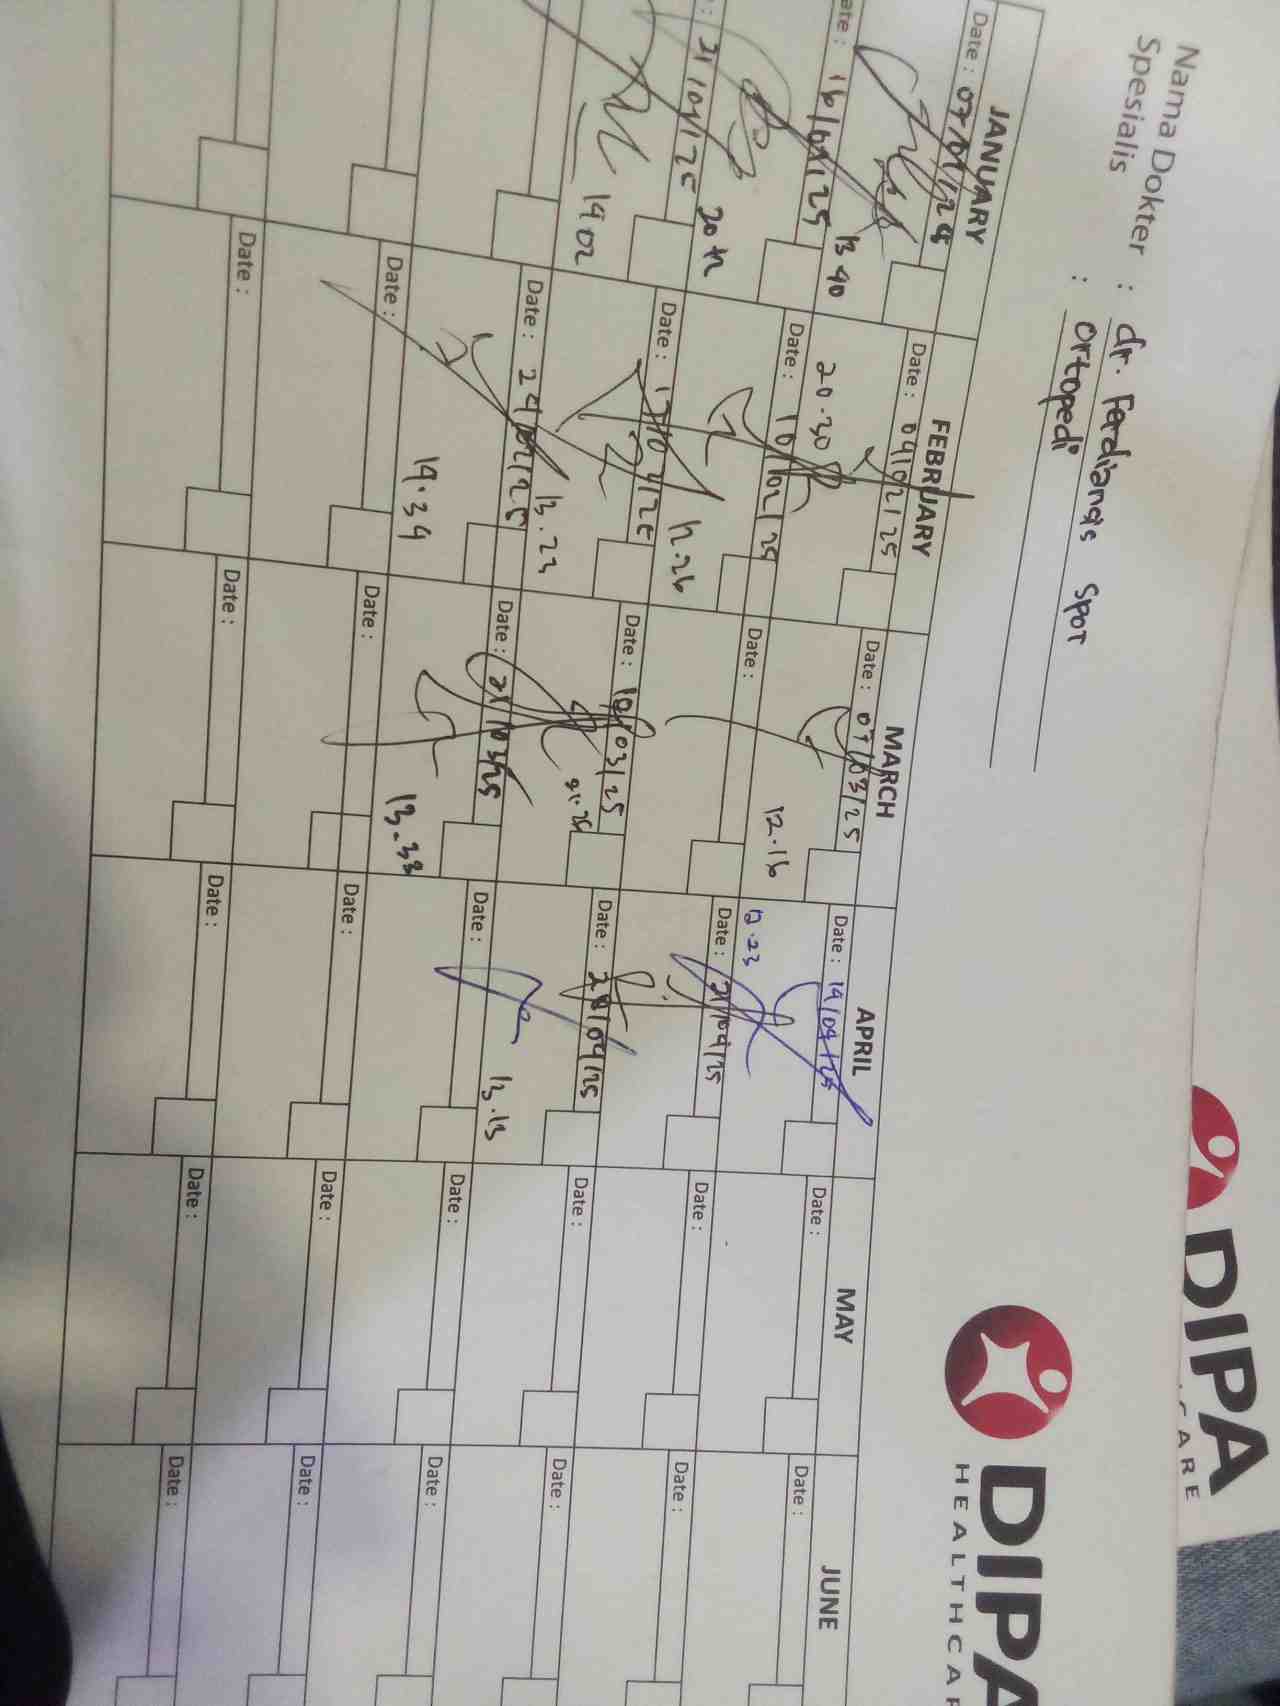 DIPA
CARE
DIPA
HEALTHCAR
Nama Dokter : dr. Ferdiansis SpOT
Spesialis : Ortopedi
JANUARY FEBRUARY MARCH APRIL MAY JUNE
Date : 07/01/25 Date : 04/02/25 Date : 07/03/25 Date : 14/04/25 Date : Date :
13 40 20.30 12.16 12.23
ate : 16/01/25 Date : 10/02/25 Date : Date : 21/04/25 Date : Date :
12.26
: 31/01/25 Date : 17/02/25 Date : 10/03/25 Date : 28/04/25 Date : Date :
19 02 13.23 13.13
Date : 24/02/25 Date : 21/03/25 Date : Date : Date :
14.34 13.33
Date : Date : Date : Date : Date :
Date : Date : Date : Date : Date :